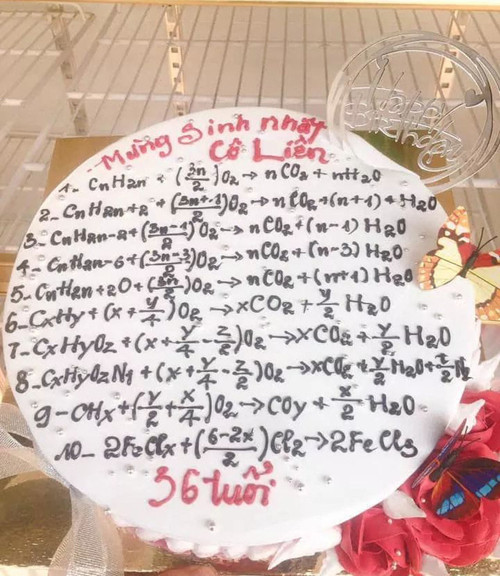 Happy
Birthday
Mừng Sinh nhật
Cô Liên
1- CnH2n + (3n/2)O2 → nCO2 + nH2O
2- CnH2n+2 + (3n+1/2)O2 → nCO2+(n+1)+H2O
3- CnH2n-2+(3n-1/2)O2→ nCO2+(n-1)H2O
4- CnH2n-6+(3n-3/2)O2→ nCO2+(n-3)H2O
5- CnH2n+2O+(3n/2)O2→ nCO2+(n+1)H2O
6- CxHy+(x+y/4)O2→xCO2+y/2 H2O
7- CxHyOz+(x+y/4-z/2)O2→xCO2+y/2 H2O
8- CxHyOzNt+(x+y/4-z/2)O2→xCO2+y/2H2O+t/2N2
9- CHx+(y/2+x/4)O2→COy+x/2 H2O
10- 2FeClx+(6-2x/2)Cl2→2FeCl3
36 tuổi